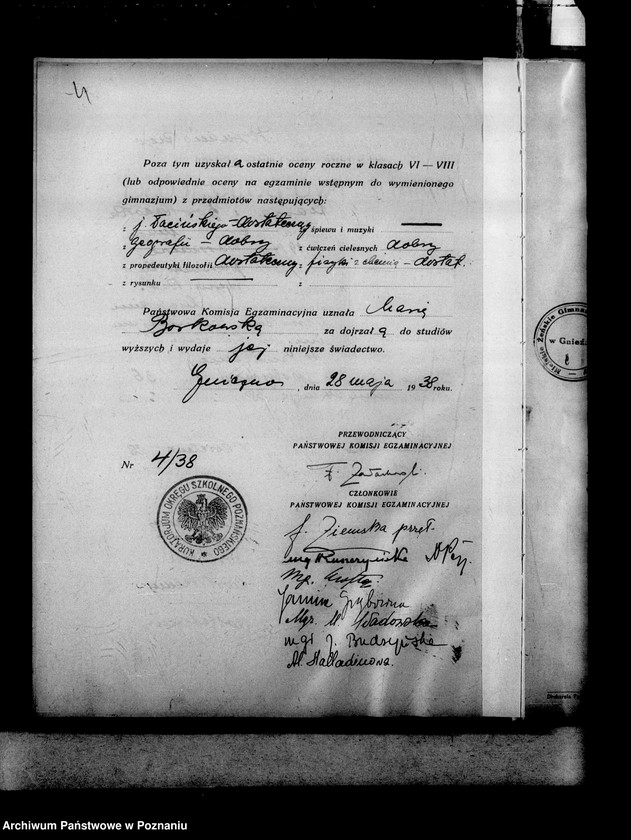 4
Poza tym uzyskała ostatnie oceny roczne w klasach VI — VIII
(lub odpowiednie oceny na egzaminie wstępnym do wymienionego
gimnazjum) z przedmiotów następujących:
z j. łacińskiego - dostateczny z śpiewu i muzyki —
z geografii - dobry z ćwiczeń cielesnych dobry
z propedeutyki filozofii dostateczny z fizyki z chemią - dostat.
z rysunku — z
Państwowa Komisja Egzaminacyjna uznała Marię
Borkowską za dojrzałą do studiów
wyższych i wydaje jej niniejsze świadectwo.
Gniezno, dnia 28 maja 1938 roku.
PRZEWODNICZĄCY
PAŃSTWOWEJ KOMISJI EGZAMINACYJNEJ
Nr 4/38
CZŁONKOWIE
PAŃSTWOWEJ KOMISJI EGZAMINACYJNEJ
KURATORJUM OKRĘGU SZKOLNEGO POZNAŃSKIEGO
J. Ziemska przeł.
Mgr.
Janina Grybowna
Mgr. W.
mgr J. Budzyńska
Żeńskie
w Gnie
Drukarnia
Archiwum Państwowe w Poznaniu